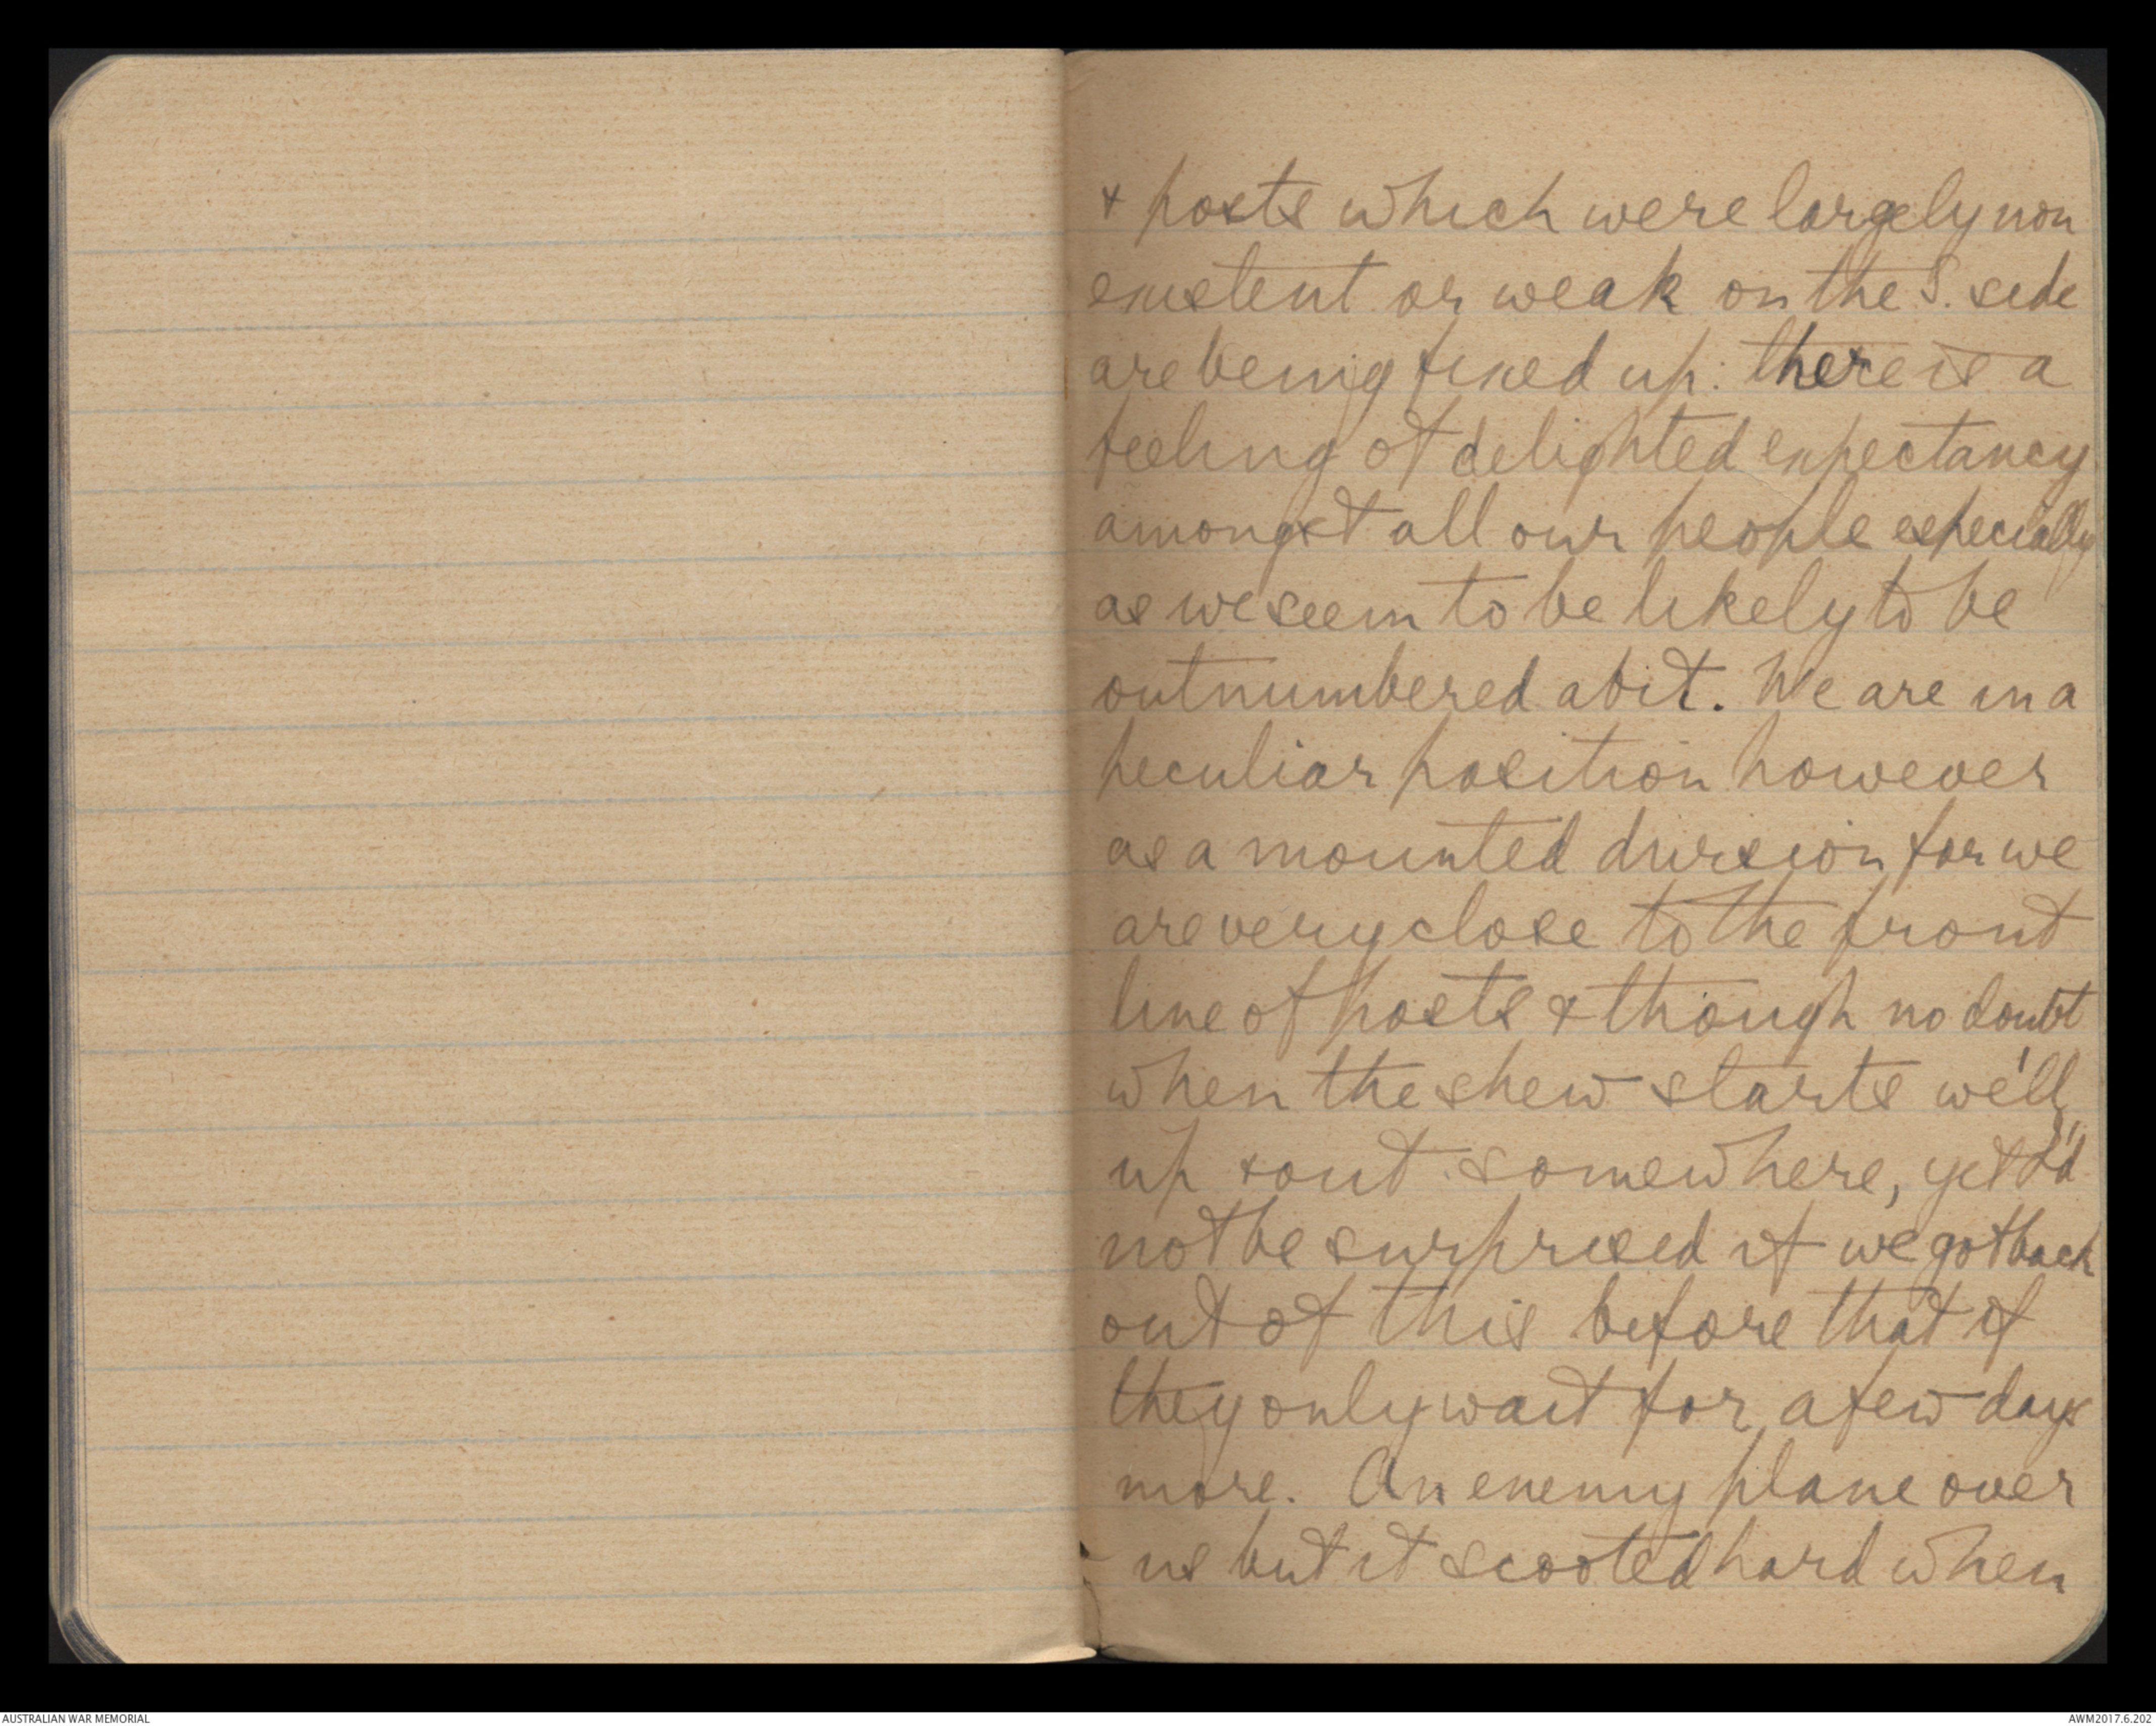 & posts which were largely non
existent or weak on the S. side
are being fixed up: there is a
feeling of delighted expectancy
amongst all our people especially
as we seem to be likely to be
outnumbered a bit. We are in a
peculiar position however
as a mounted division for we
are very close to the front
line of posts & though no doubt
when the shew starts we'll
up & out somewhere, yet I'd
not be surprised if we got back
out of this before that if
they only wait for a few days
more. An enemy plane over
us but it scooted hard when
AUSTRALIAN WAR MEMORIAL
AWM2017.6.202